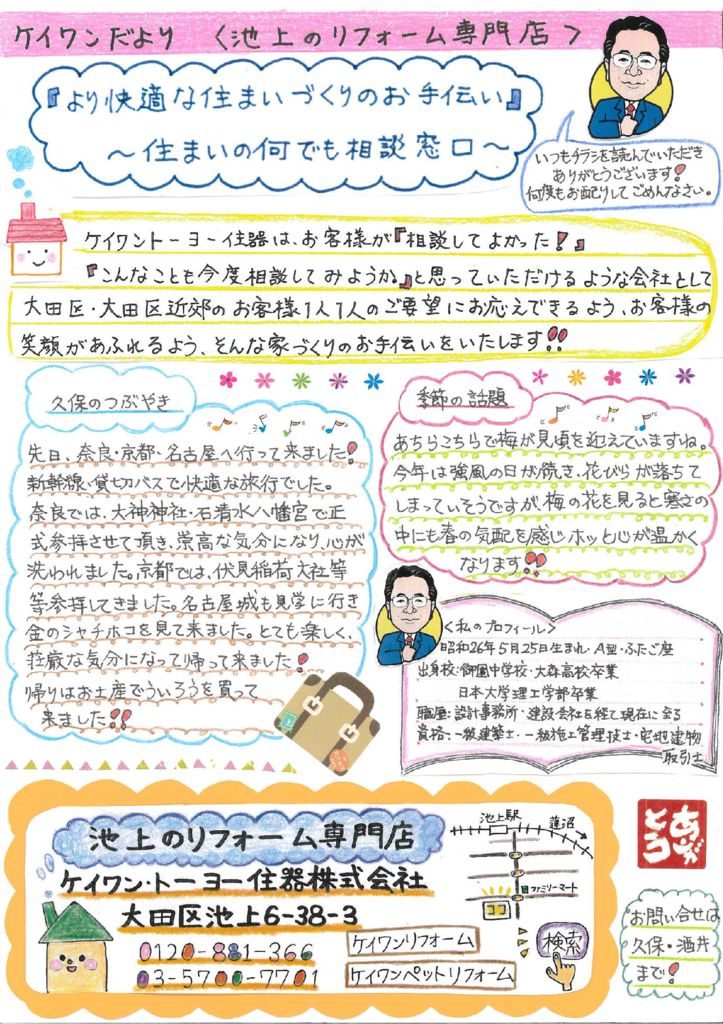 ケイワンだより 〈池上のリフォーム専門店〉
『より快適な住まいづくりのお手伝い』
～住まいの何でも相談窓口～
いつもチラシを読んでいただき
ありがとうございます!
何度もお配りしてごめんなさい。
ケイワントーヨー住器は、お客様が『相談してよかった!』
『こんなことも今度相談してみようか』と思っていただけるような会社として
大田区・大田区近郊のお客様1人1人のご要望にお応えできるよう、お客様の
笑顔があふれるよう、そんな家づくりのお手伝いをいたします!!
久保のつぶやき
先日、奈良・京都・名古屋へ行って来ました!
新幹線・貸切バスで快適な旅行でした。
奈良では、大神神社・石清水八幡宮で正
式参拝させて頂き、崇高な気分になり、心が
洗われました。京都では、伏見稲荷大社等
等参拝してきました。名古屋城も見学に行き
金のシャチホコを見て来ました。とても楽しく、
荘厳な気分になって帰って来ました!
帰りはお土産でういろうを買って
来ました!!
季節の話題
あちらこちらで梅が見頃を迎えていますね。
今年は強風の日が続き、花びらが落ちて
しまっていそうですが、梅の花を見ると寒さの
中にも春の気配を感じ、ホッと心が温かく
なります!!
〈私のプロフィール〉
昭和26年5月25日生まれ・A型・ふたご座
出身校:御園中学校・大森高校卒業
日本大学理工学部卒業
職歴:設計事務所・建設会社を経て現在に至る
資格:一級建築士・一級施工管理技士・宅地建物
取引士
池上のリフォーム専門店
ケイワン・トーヨー住器株式会社
大田区池上6-38-3
0120-881-366
03-5700-7701
ケイワンリフォーム
ケイワンペットリフォーム
検索
池上駅
蓮沼
ファミリーマート
ココ
ありがとう
お問い合せは
久保・酒井
まで!